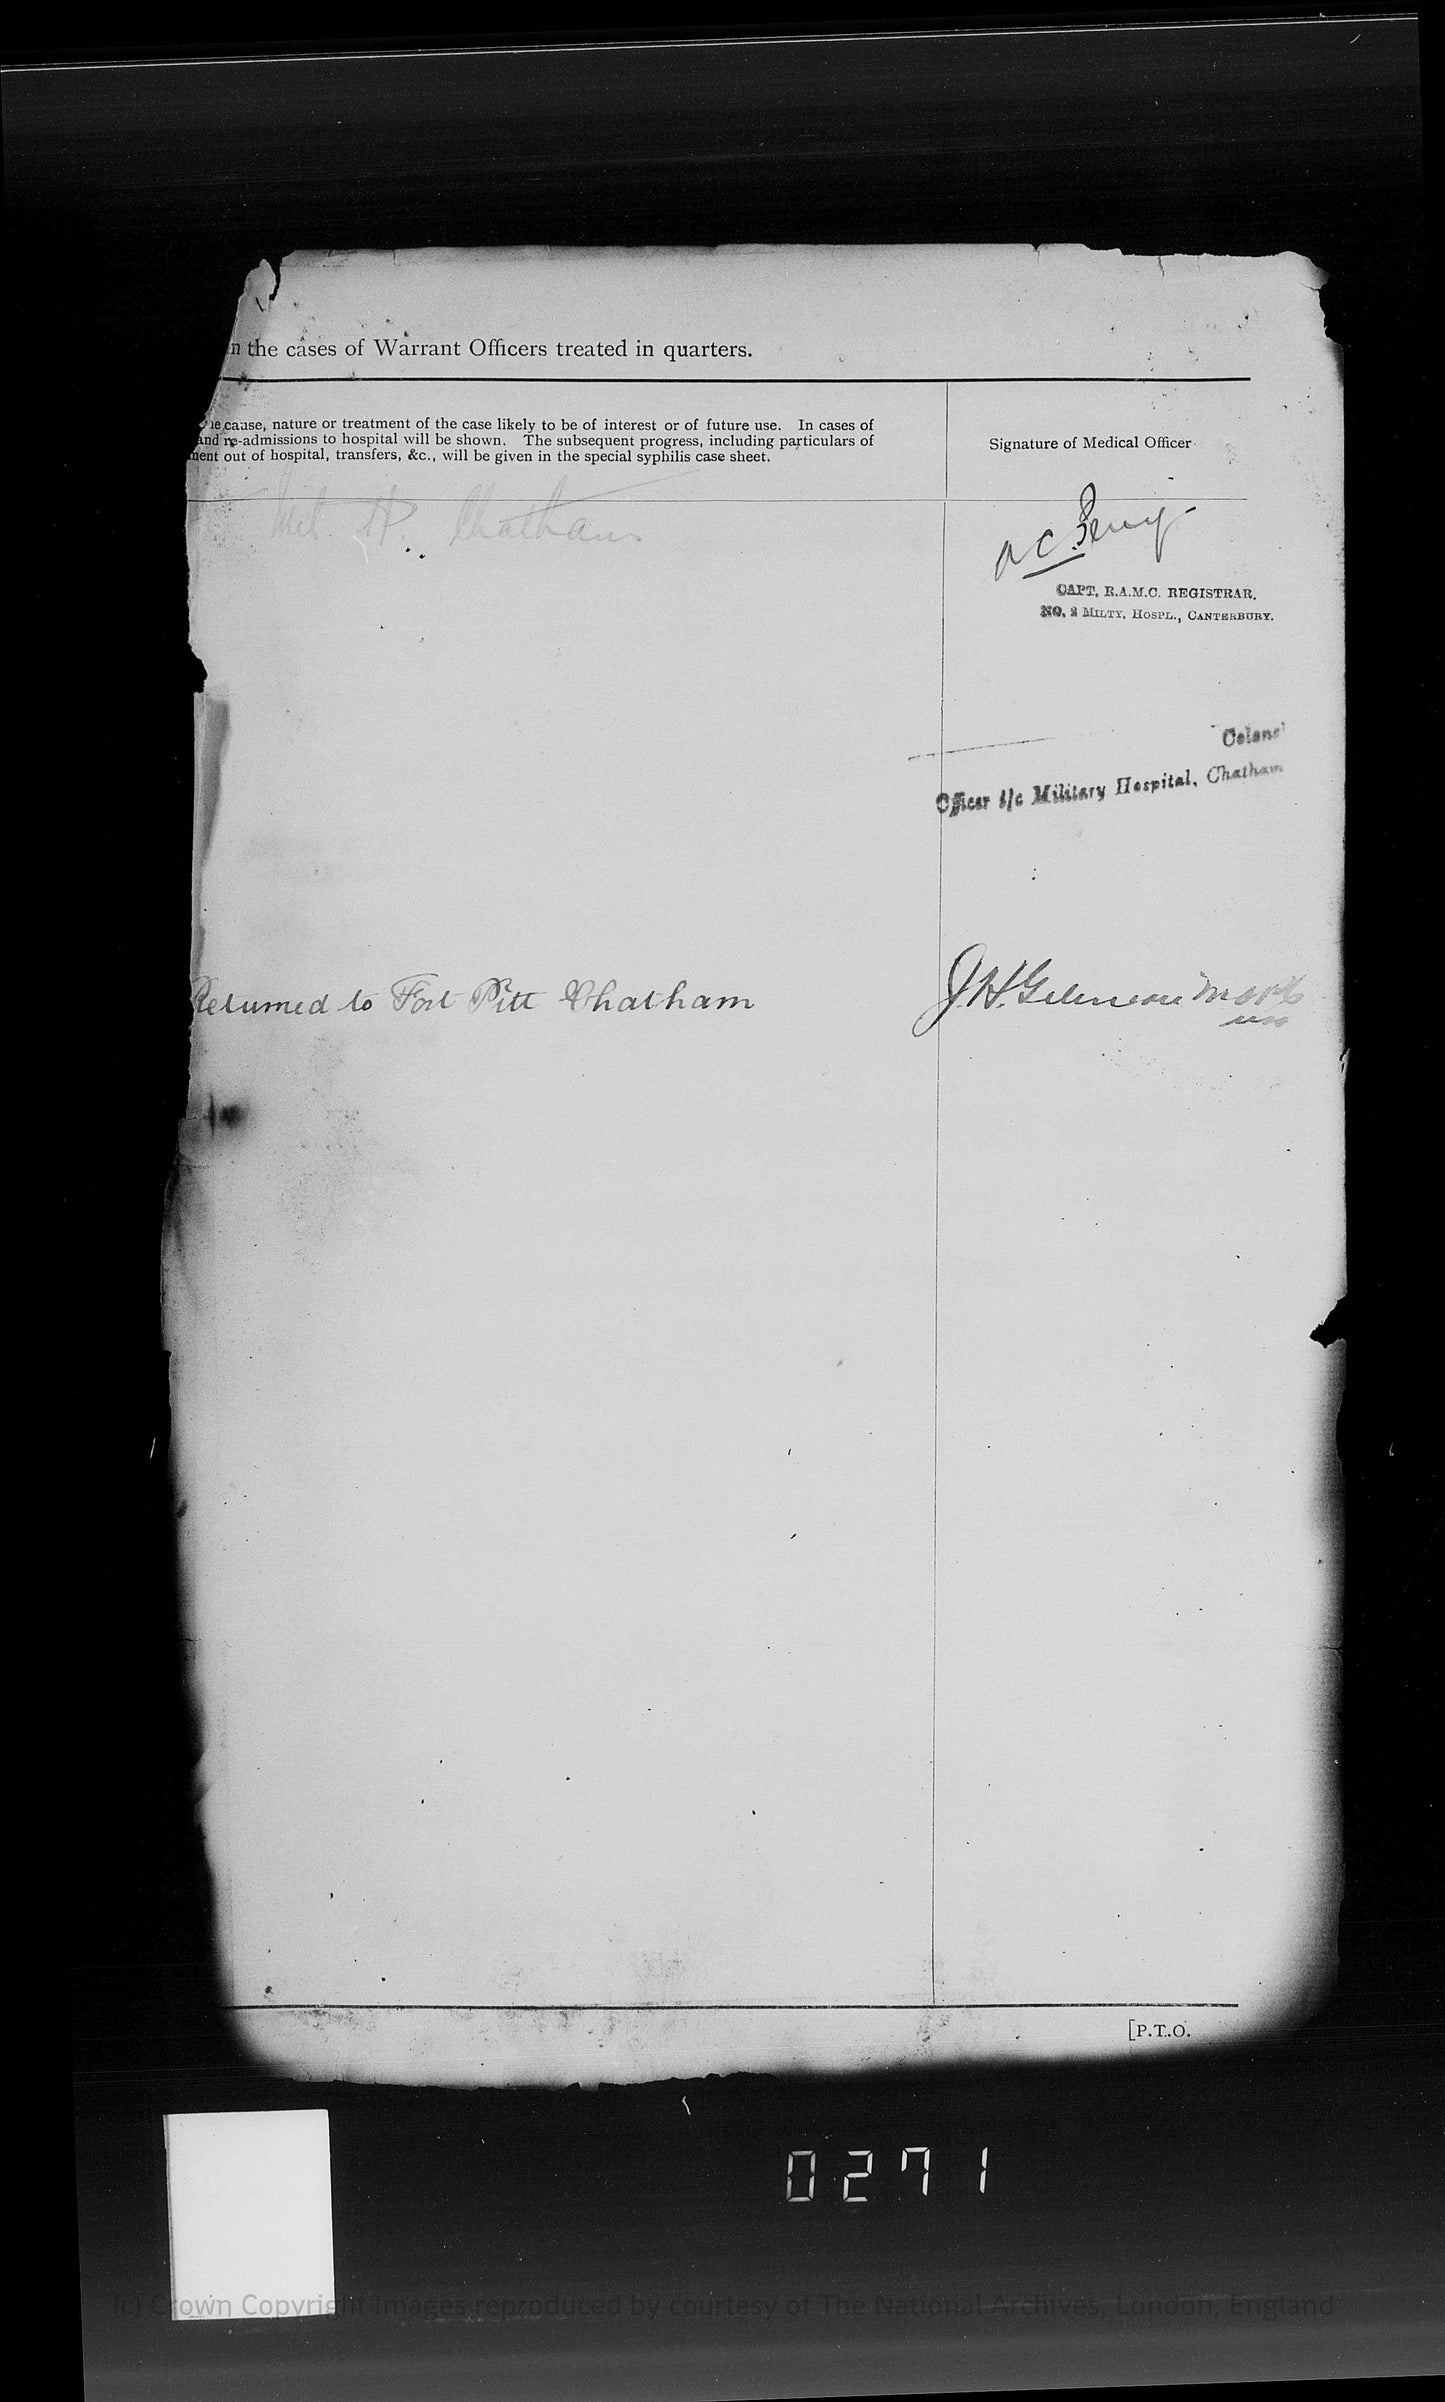 n the cases of Warrant Officers treated in quarters.
he cause, nature or treatment of the case likely to be of interest or of future use. In cases of
and re-admissions to hospital will be shown. The subsequent progress, including particulars of
ment out of hospital, transfers, &c., will be given in the special syphilis case sheet.
Signature of Medical Officer
Chatham
A C
CAPT, R.A.M.C. REGISTRAR.
NO. 2 MILTY, HOSPL., CANTERBURY.
Colonel
Officer i/c Military Hospital, Chatham
Returned to Fort Pitt Chatham
J.H.
[P.T.O.
0271
(c) Crown Copyright Images reproduced by courtesy of The National Archives, London, England